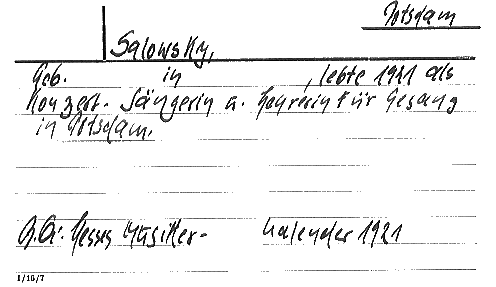 Potsdam
Salowsky,
Geb. in , lebte 1921 als
Konzert-Sängerin u. Lehrerin für Gesang
in Potsdam.
Hesses Musiker-Kalender 1921
1/16/7